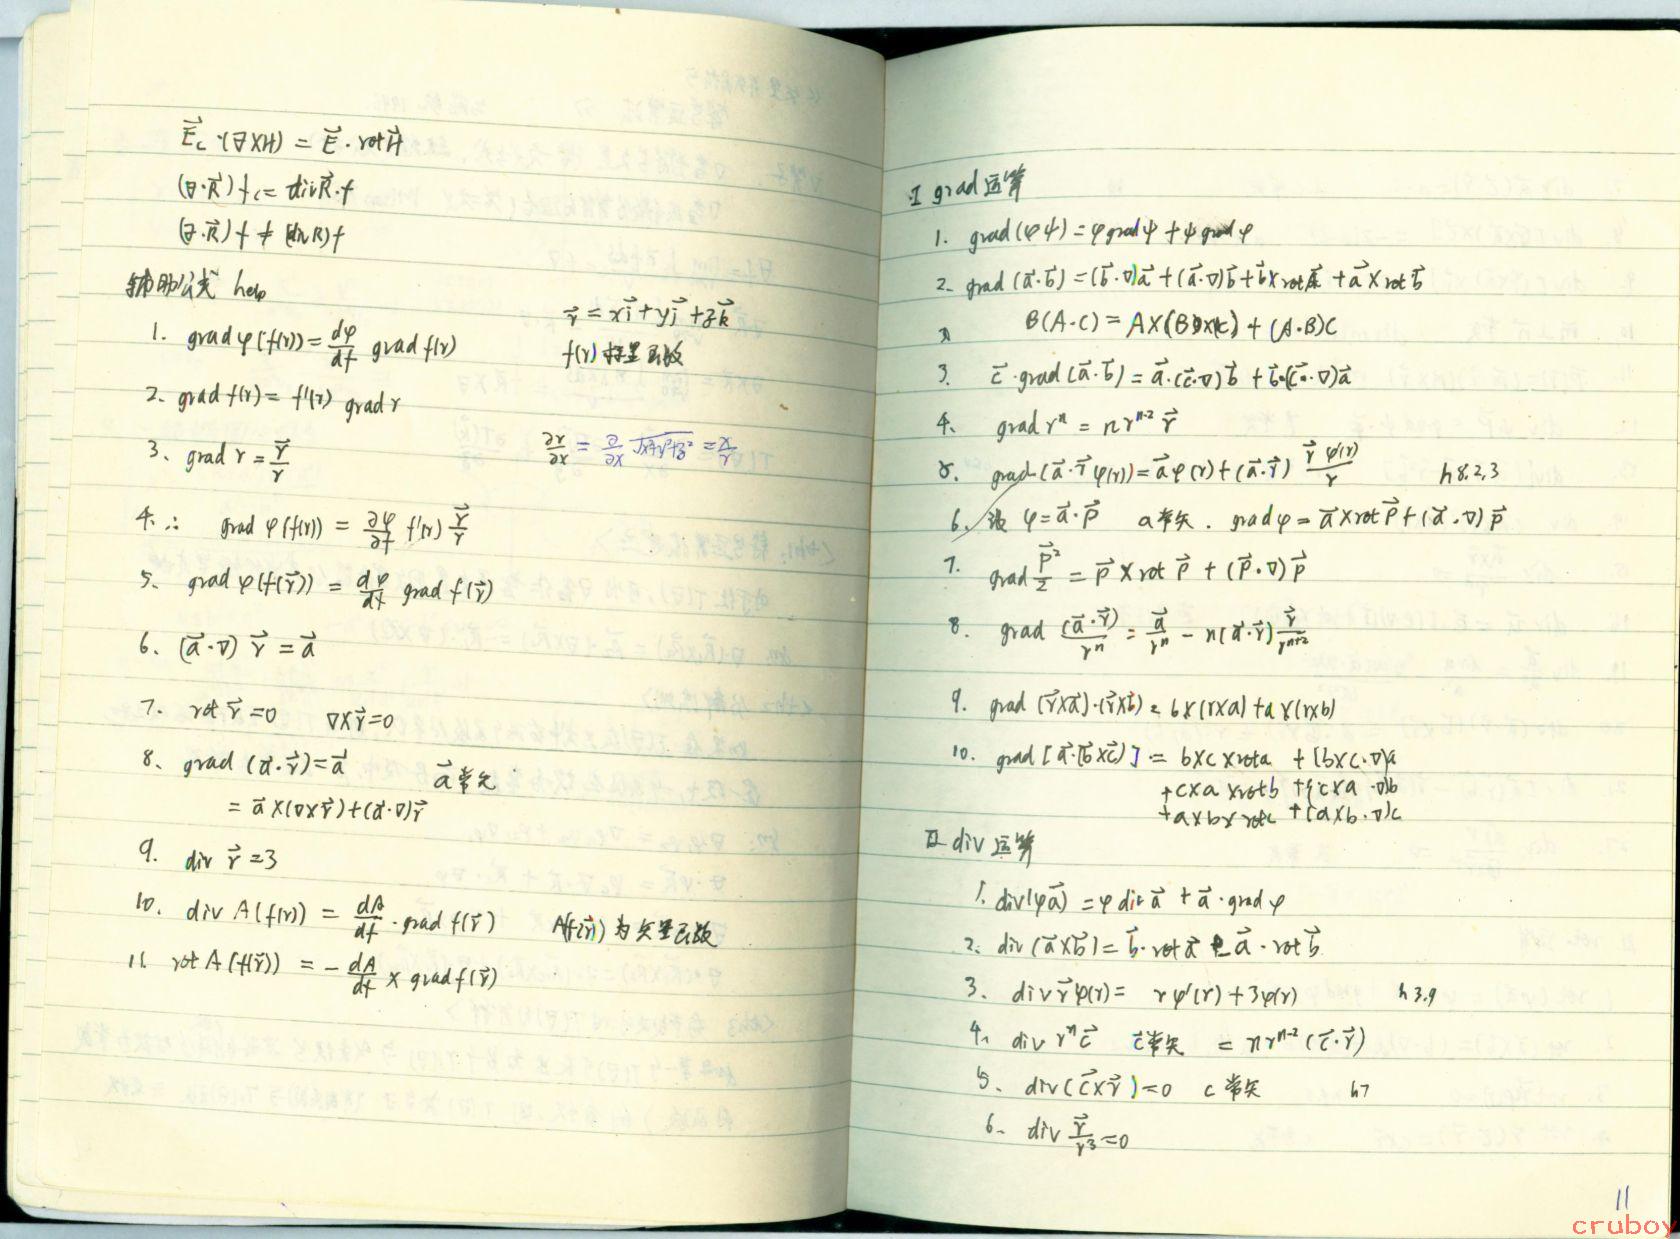 E⃗c·(∇×H) = E⃗·rotH⃗
(∇·R⃗)fc = divR⃗·f
(∇·R⃗)f ≠ (divR)f
辅助公式 help
r⃗ = xi⃗+yj⃗+zk⃗
1. grad φ(f(r)) = dφ/df grad f(r)
f(r) 标量函数
2. grad f(r) = f'(r) grad r
3. grad r = r⃗/r
∂r/∂x = ∂/∂x √x²+y²+z² = x/r
4. ∴ grad φ(f(r)) = ∂φ/∂f f'(r) r⃗/r
5. grad φ(f(r⃗)) = dφ/df grad f(r⃗)
6. (a⃗·∇) r⃗ = a⃗
7. rot r⃗ = 0 ∇×r⃗=0
8. grad (a⃗·r⃗) = a⃗ a⃗常矢
= a⃗×(∇×r⃗)+(a⃗·∇)r⃗
9. div r⃗ = 3
10. div A(f(r)) = dA/df · grad f(r⃗) A(f(r⃗)) 为矢量函数
11. rot A(f(r⃗)) = - dA/df × grad f(r⃗)
I grad 运算
1. grad(φψ) = φgradψ + ψgradφ
2. grad (a⃗·b⃗) = (b⃗·∇)a⃗ + (a⃗·∇)b⃗ + b⃗×rota⃗ + a⃗×rotb⃗
B(A·C) = A×(B×C) + (A·B)C
3. c⃗·grad(a⃗·b⃗) = a⃗·(c⃗·∇)b⃗ + b⃗·(c⃗·∇)a⃗
4. grad rⁿ = n rⁿ⁻² r⃗
5. grad (a⃗·r⃗ φ(r)) = a⃗φ(r)+(a⃗·r⃗) r⃗ φ'(r)/r h8,2,3
6. 设 φ=a⃗·P⃗ a常矢. gradφ = a⃗×rotP⃗+(a⃗·∇)P⃗
7. grad P⃗²/2 = P⃗×rot P⃗ + (P⃗·∇)P⃗
8. grad (a⃗·r⃗)/rⁿ = a⃗/rⁿ - n(a⃗·r⃗) r⃗/rⁿ⁺²
9. grad (r⃗×a⃗)·(r⃗×b⃗) = b×(r×a)+a×(r×b)
10. grad [a⃗·(b⃗×c⃗)] = b×c×rota + (b×c·∇)a
+c×a×rotb +(c×a·∇)b
+a×b×rotc +(a×b·∇)c
II div 运算
1. div(φa⃗) = φdiva⃗ + a⃗·gradφ
2. div (a⃗×b⃗) = b⃗·rota⃗ - a⃗·rotb⃗
3. div r⃗φ(r) = rφ'(r)+3φ(r) h3,9
4. div rⁿc⃗ c⃗常矢 = n rⁿ⁻²(c⃗·r⃗)
5. div(c⃗×r⃗)=0 c常矢 h7
6. div r⃗/r³=0
11
cruboy